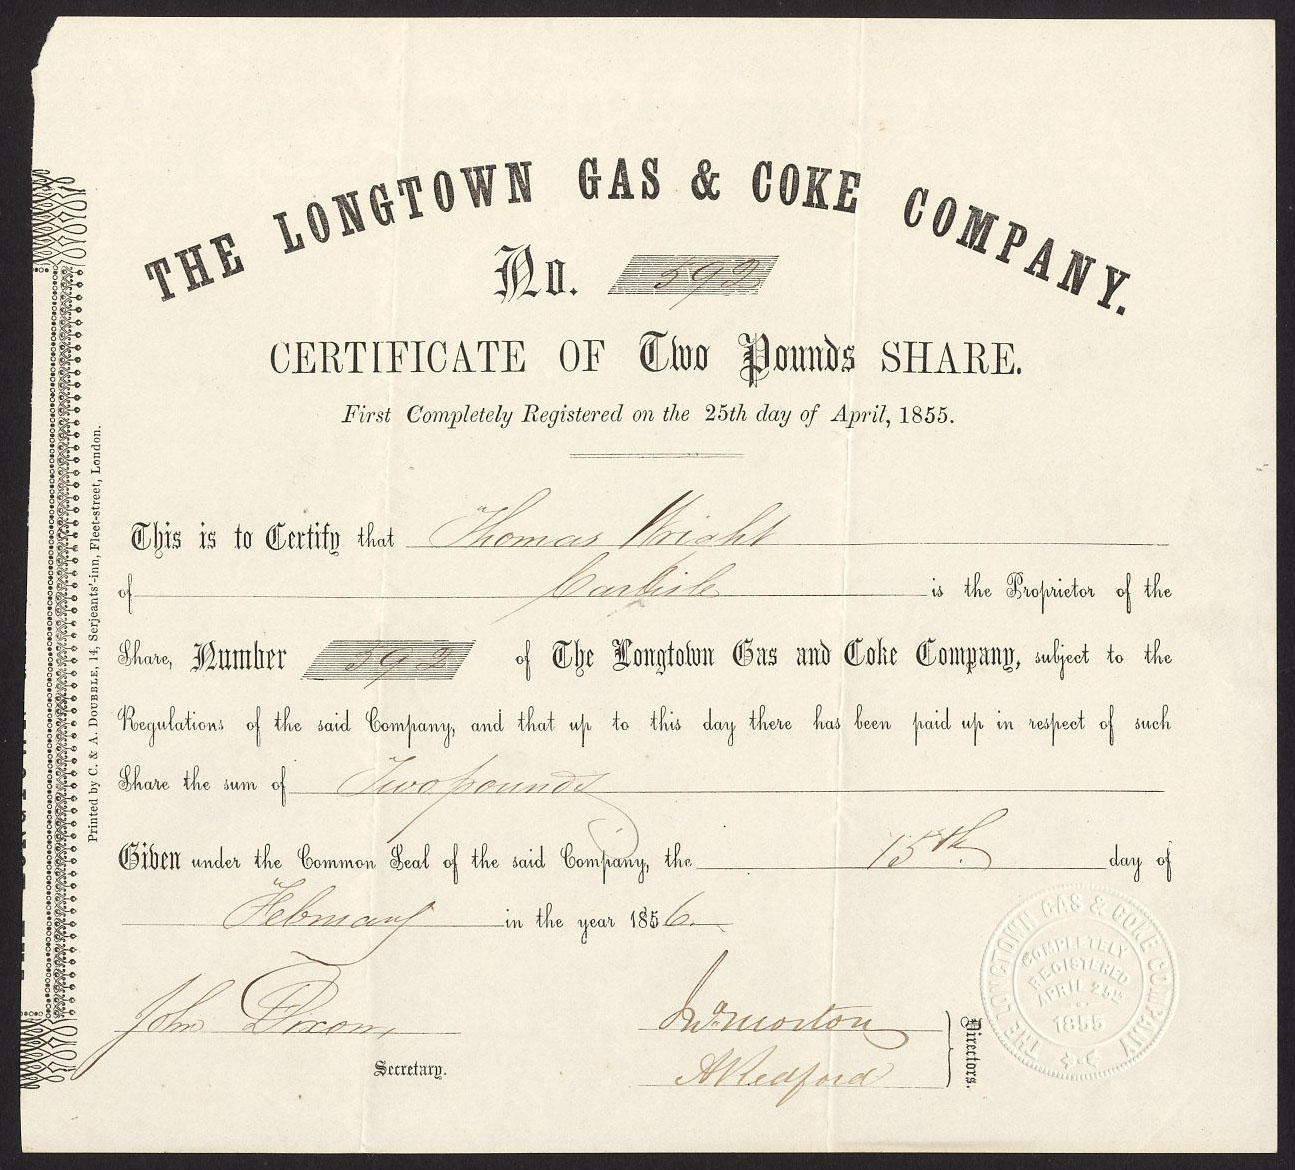 THE LONGTOWN GAS & COKE COMPANY.
No. 592
CERTIFICATE OF Two Pounds SHARE.
First Completely Registered on the 25th day of April, 1855.
This is to Certify that Thomas Wright
of Carlisle is the Proprietor of the
Share, Number 592 of The Longtown Gas and Coke Company, subject to the
Regulations of the said Company, and that up to this day there has been paid up in respect of such
Share the sum of Two pounds
Given under the Common Seal of the said Company, the 15th. day of
February in the year 1856.
John Dixon,
Secretary.
Jno. Morton
Redford
Directors.
THE LONGTOWN GAS & COKE COMPANY
COMPLETELY
REGISTERED
APRIL 25th
1855
Printed by C. & A. DOUBBLE, 14, Serjeants'-inn, Fleet-street, London.